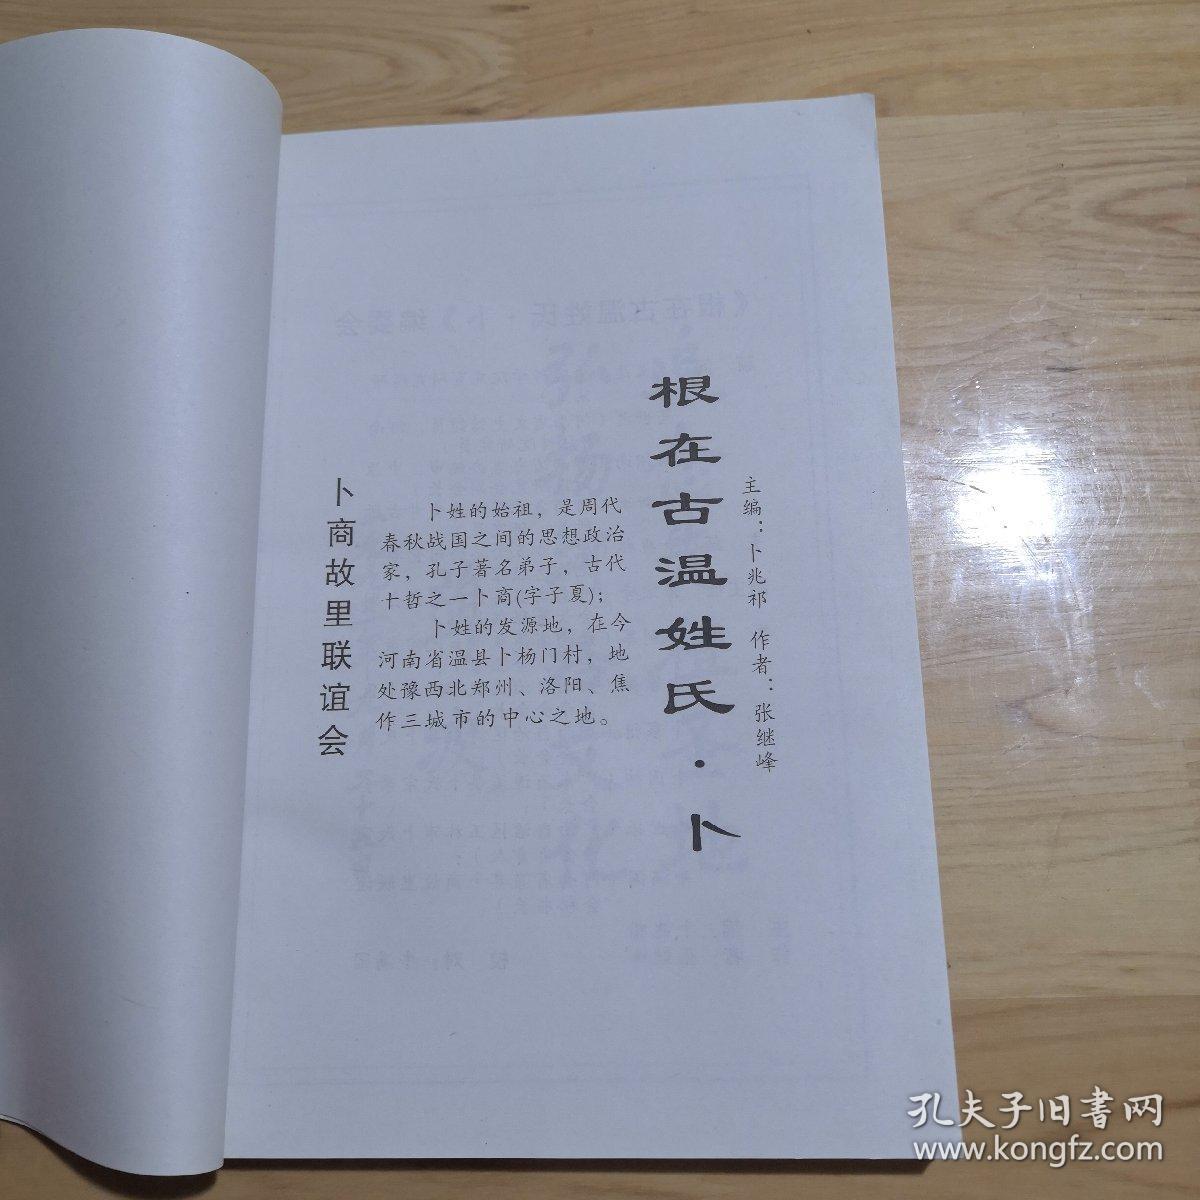 主编：卜兆祁 作者：张继峰
根在古温姓氏·卜
卜姓的始祖，是周代
春秋战国之间的思想政治
家，孔子著名弟子，古代
十哲之一卜商(字子夏)；
卜姓的发源地，在今
河南省温县卜杨门村，地
处豫西北郑州、洛阳、焦
作三城市的中心之地。
卜商故里联谊会
孔夫子旧書网
www.kongfz.com